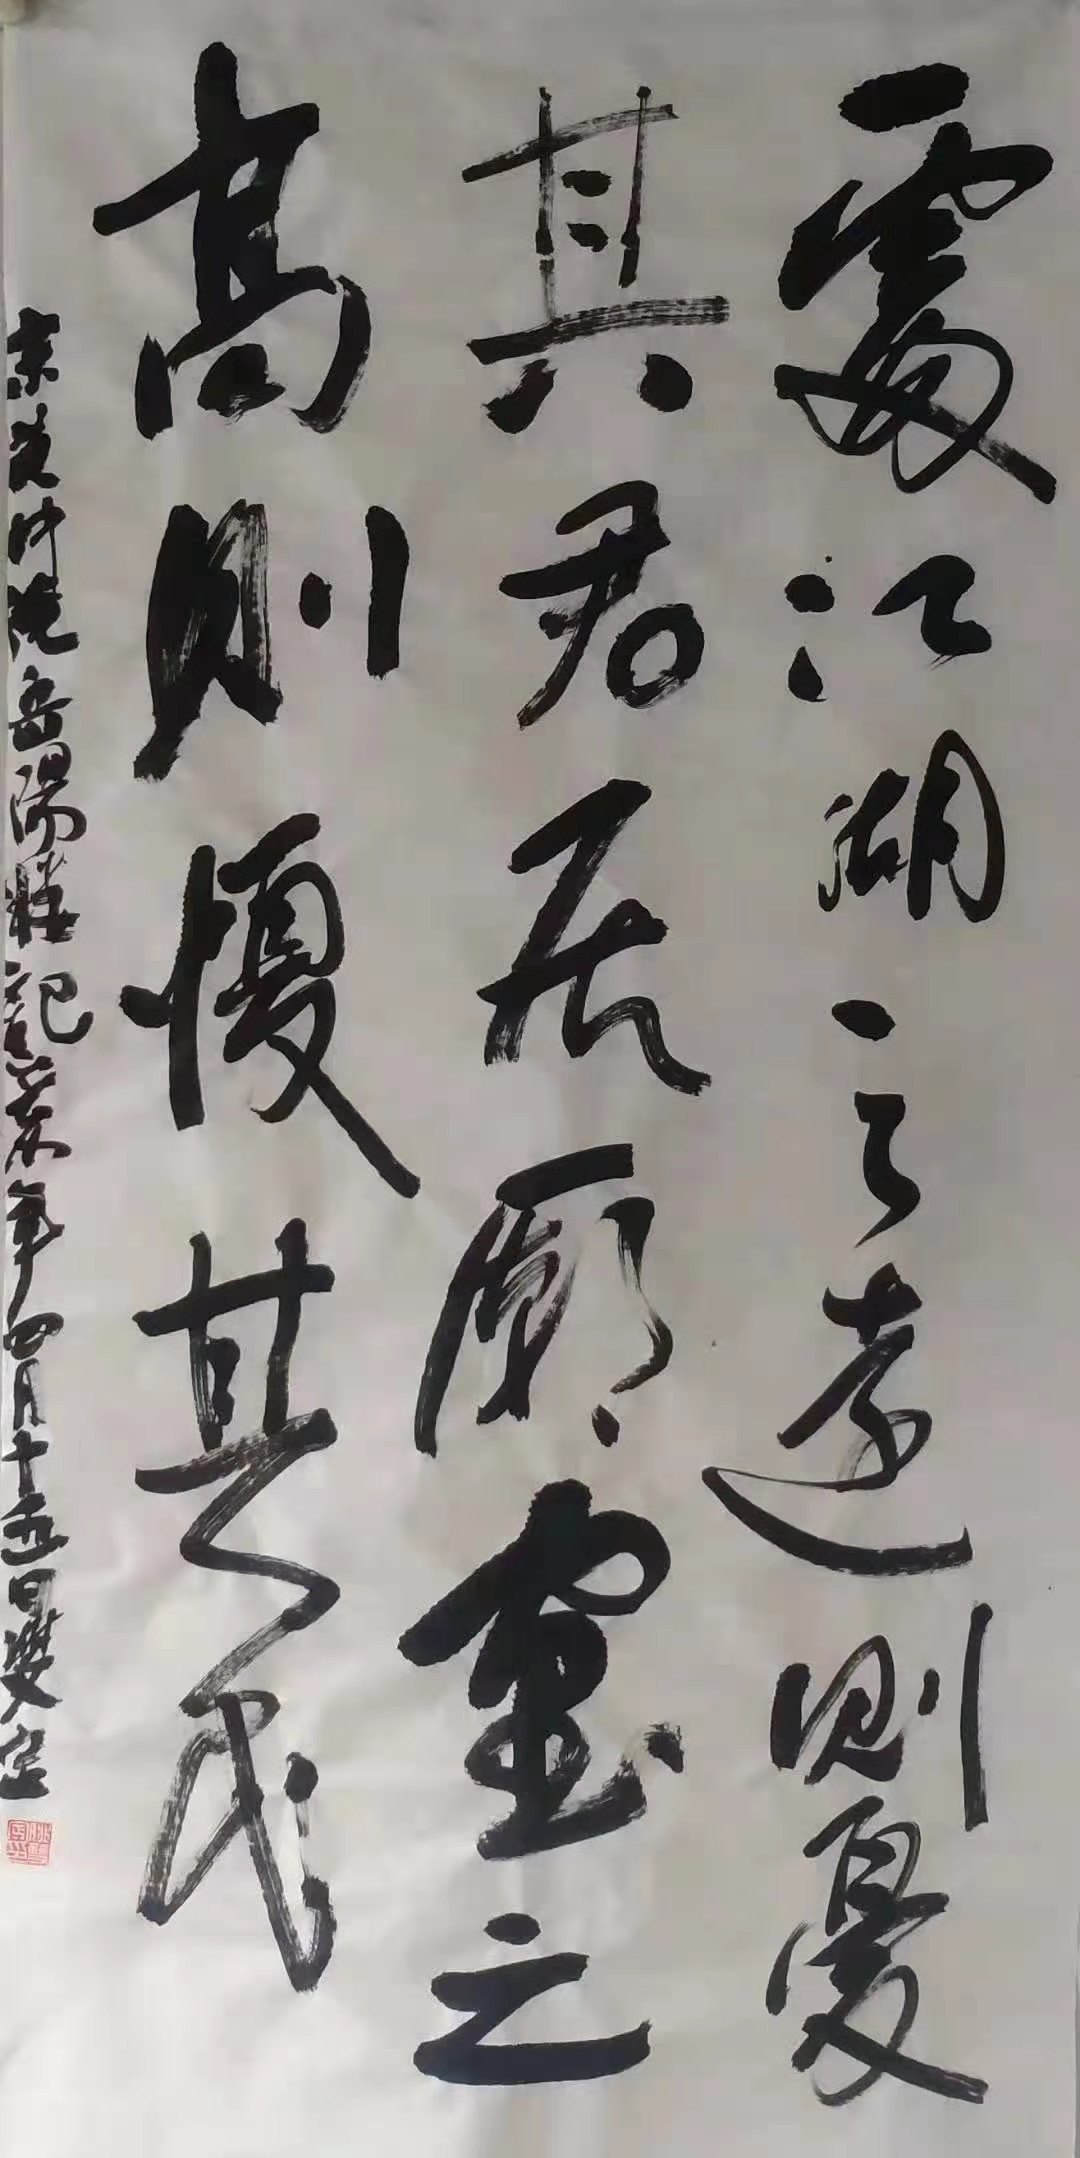 處江湖之遠則憂
其君居廟堂之
高則憂其民
宋范仲淹岳陽樓記 年四月十五日雙